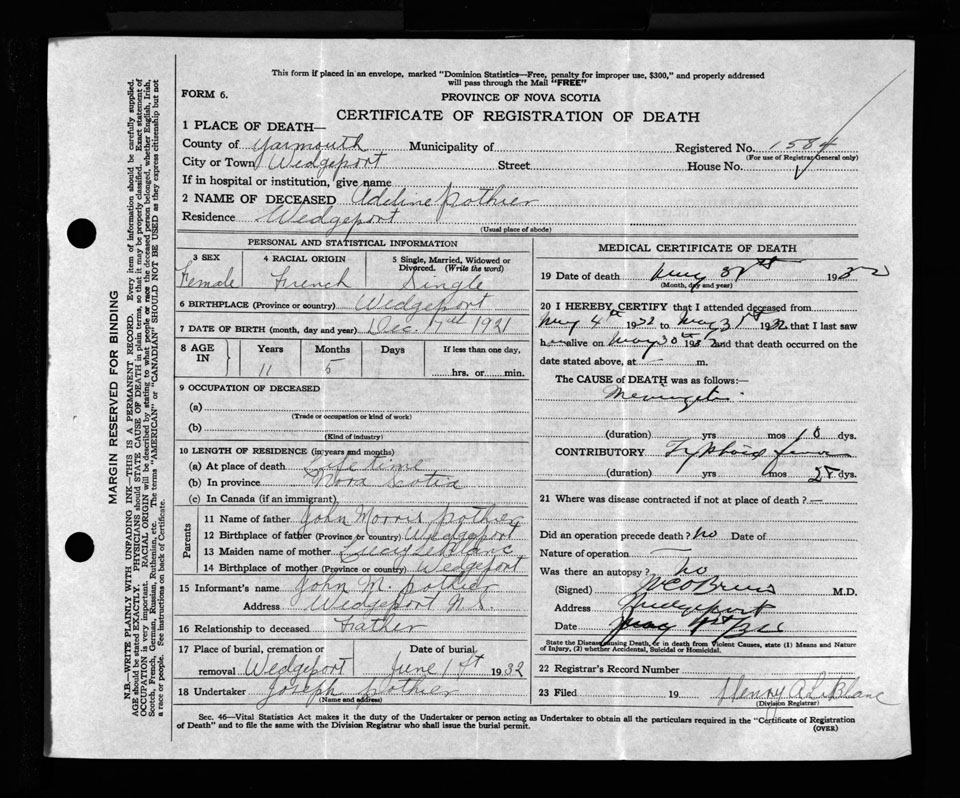 This form if placed in an envelope, marked "Dominion Statistics—Free, penalty for improper use, $300," and properly addressed
will pass through the Mail "FREE"
FORM 6.
PROVINCE OF NOVA SCOTIA
CERTIFICATE OF REGISTRATION OF DEATH
1 PLACE OF DEATH—
County of Yarmouth Municipality of Registered No. 1584
(For use of Registrar General only)
City or Town Wedgeport Street House No.
If in hospital or institution, give name
2 NAME OF DECEASED Adeline Pothier
Residence Wedgeport
(Usual place of abode)
PERSONAL AND STATISTICAL INFORMATION
3 SEX 4 RACIAL ORIGIN 5 Single, Married, Widowed or
Divorced. (Write the word)
Female French Single
6 BIRTHPLACE (Province or country) Wedgeport
7 DATE OF BIRTH (month, day and year) Dec. 7th 1921
8 AGE IN Years Months Days If less than one day,
11 5 hrs. or min.
9 OCCUPATION OF DECEASED
(a)
(Trade or occupation or kind of work)
(b)
(Kind of industry)
10 LENGTH OF RESIDENCE (in years and months)
(a) At place of death Life time
(b) In province Nova Scotia
(c) In Canada (if an immigrant)
Parents
11 Name of father John Morris Pothier
12 Birthplace of father (Province or country) Wedgeport
13 Maiden name of mother Lucy LeBlanc
14 Birthplace of mother (Province or country) Wedgeport
15 Informant's name John M. Pothier
Address Wedgeport N.S.
16 Relationship to deceased Father
17 Place of burial, cremation or Date of burial:
removal Wedgeport June 1st 1932
18 Undertaker Joseph Pothier
(Name and address)
MEDICAL CERTIFICATE OF DEATH
19 Date of death May 31st 1932
(Month, day and year)
20 I HEREBY CERTIFY that I attended deceased from
May 4th 1932 to May 31st 1932 that I last saw
h alive on May 30th 1932 and that death occurred on the
date stated above, at — m.
The CAUSE of DEATH was as follows:—
Meningitis
(duration) yrs mos 10 dys.
CONTRIBUTORY Typhoid fever
(duration) yrs mos 28 dys.
21 Where was disease contracted if not at place of death? —
Did an operation precede death? no Date of
Nature of operation —
Was there an autopsy? no
(Signed) M.D.
Address Wedgeport
Date
State the Disease causing Death, or in death from Violent Causes, state (1) Means and Nature
of Injury, (2) whether Accidental, Suicidal or Homicidal.
22 Registrar's Record Number
23 Filed 19 Henry A LeBlanc
(Division Registrar)
Sec. 46—Vital Statistics Act makes it the duty of the Undertaker or person acting as Undertaker to obtain all the particulars required in the "Certificate of Registration
of Death" and to file the same with the Division Registrar who shall issue the burial permit.
(OVER)
MARGIN RESERVED FOR BINDING
N.B.—WRITE PLAINLY WITH UNFADING INK—THIS IS A PERMANENT RECORD. Every item of information should be carefully supplied.
AGE should be stated EXACTLY. PHYSICIANS should STATE CAUSE OF DEATH in plain terms, so that it may be properly classified. Exact statement of
OCCUPATION is very important. RACIAL ORIGIN will be described by stating to what people or race the deceased person belonged, whether English, Irish,
Scotch, French, German, Russian, Ruthenian, etc. The terms "AMERICAN" or "CANADIAN" SHOULD NOT BE USED as they express citizenship but not
a race or people. See instructions on back of Certificate.